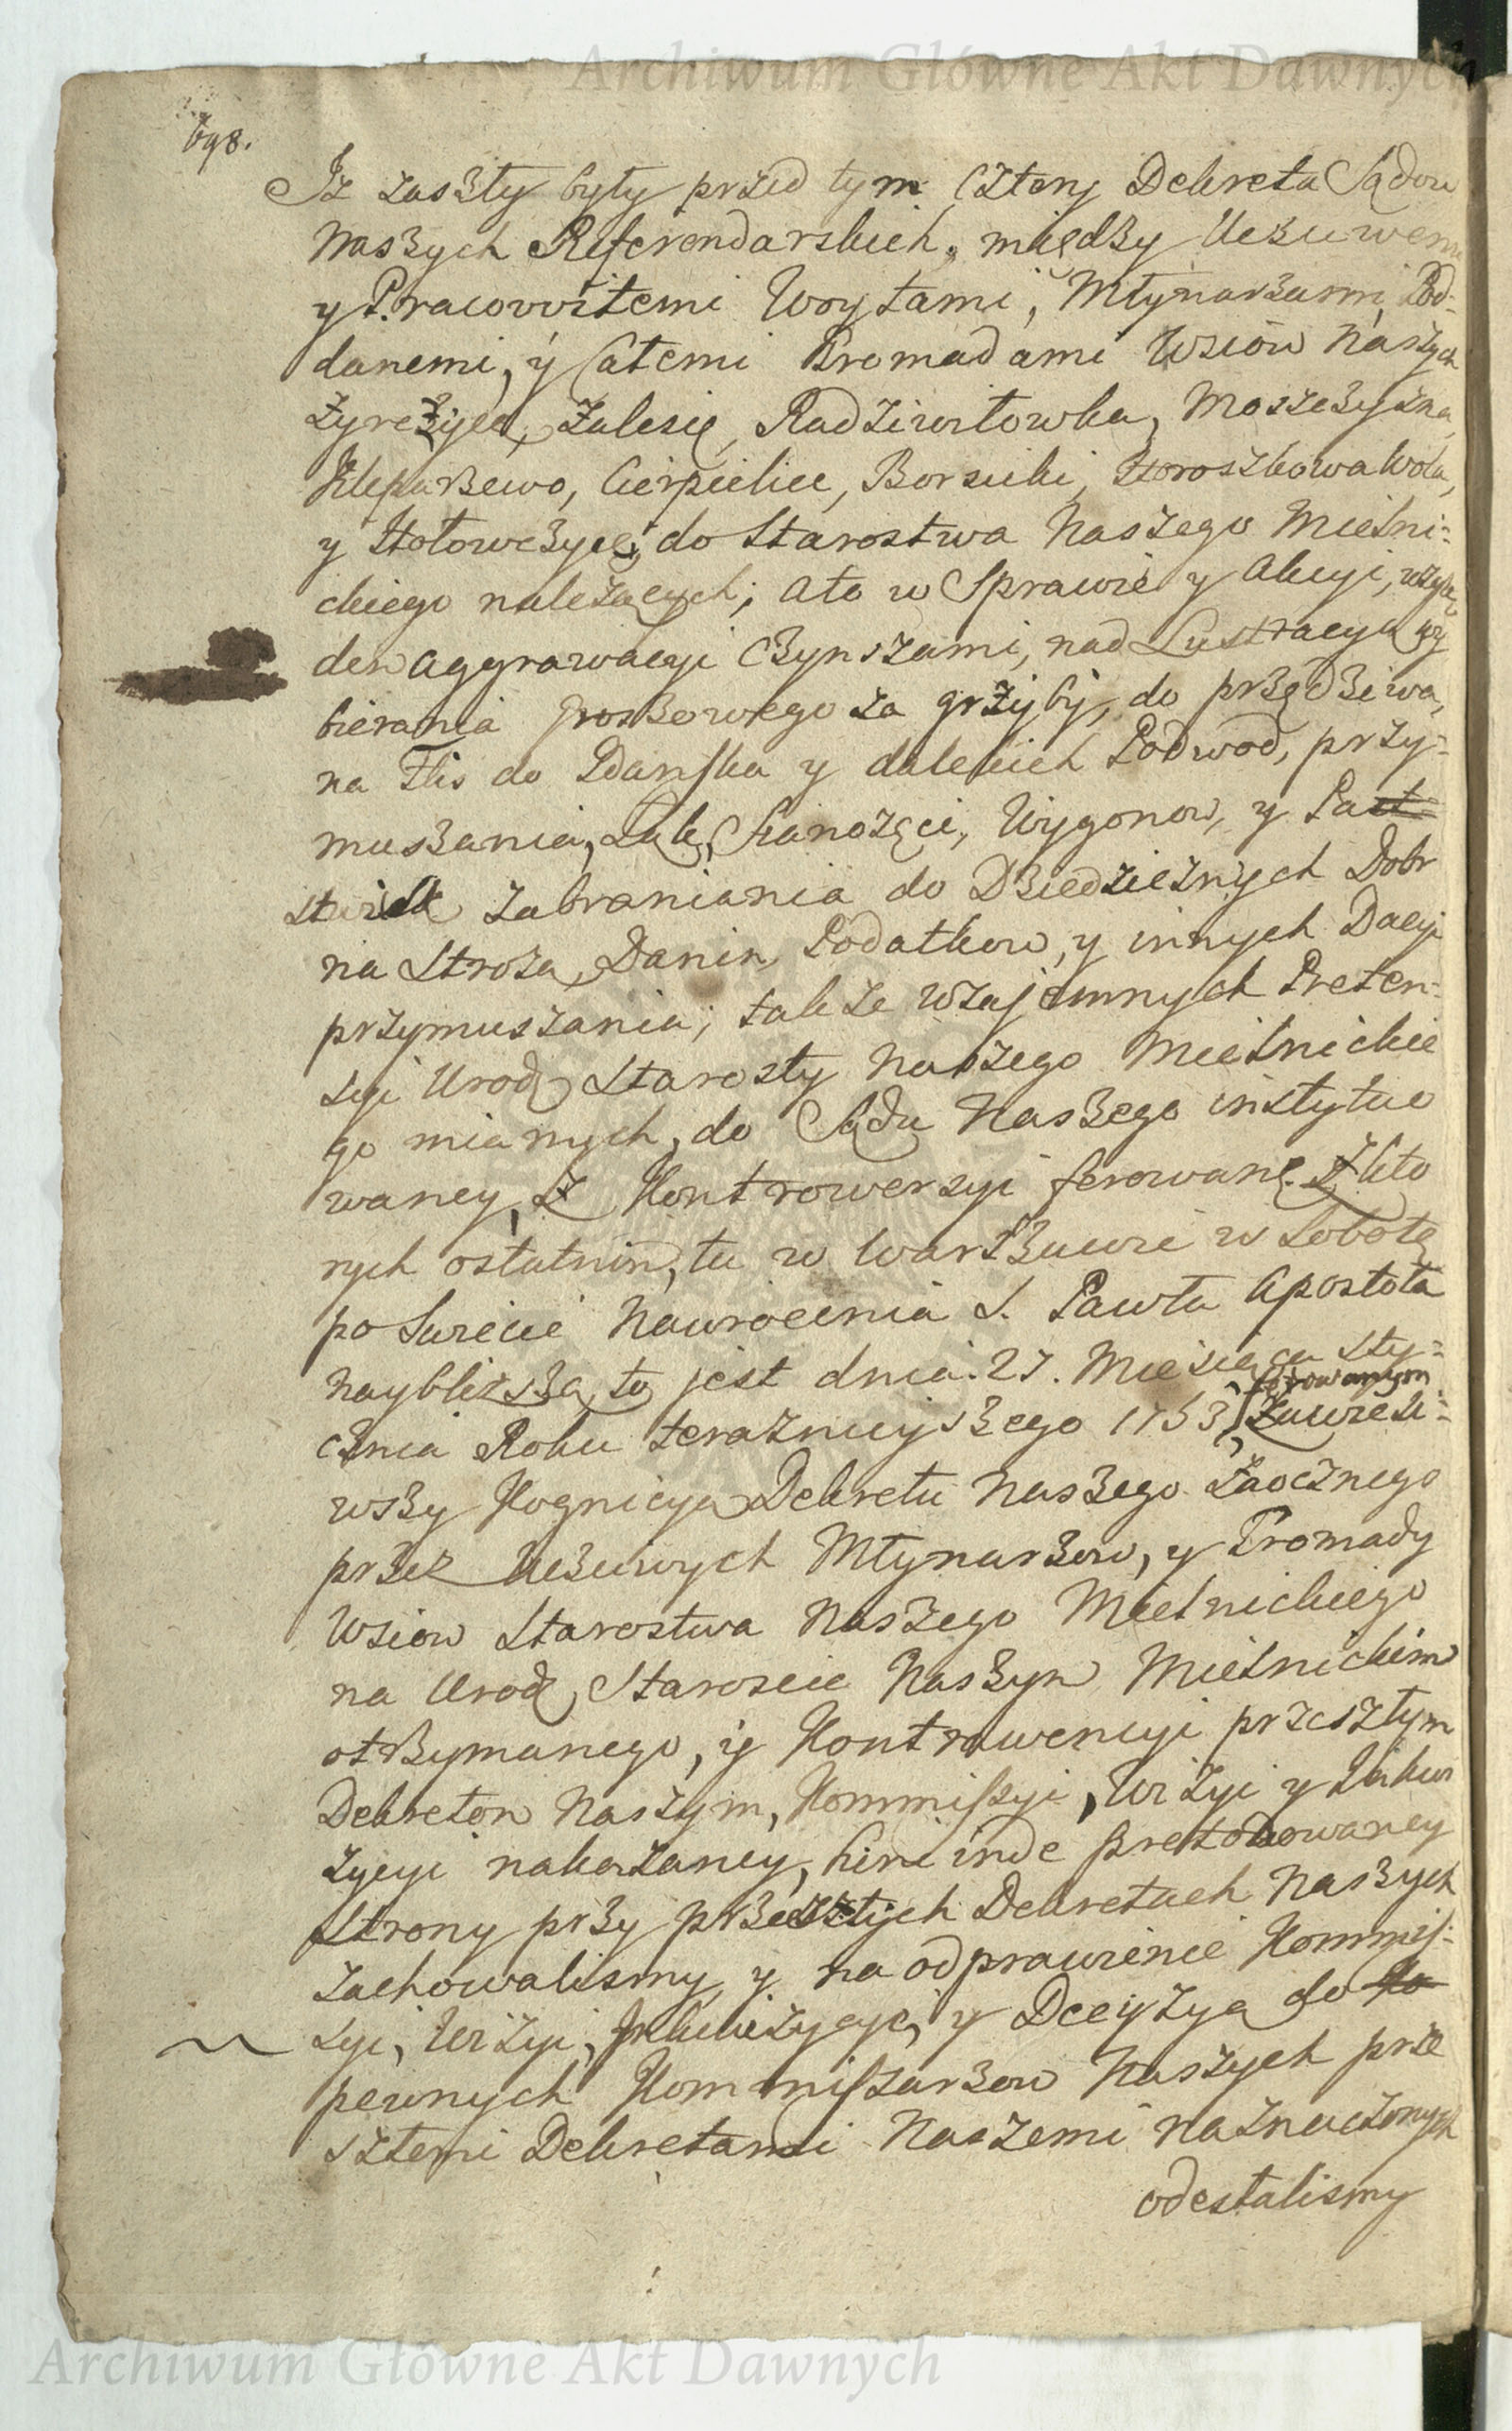 Archiwum Główne Akt Dawnych
698.
Iż zaszły były przed tym cztery Dekreta Sądow
Naszych Referendarskich, między Uczciwemi
y Pracowitemi Woytami, Młynarzami, Pod-
danemi, y Całemi Gromadami Wsiow Naszych
Zyrczyce, Zalesie, Radziwiłowka, Moszczyzna,
Klepaczewo, Cierpielice, Borsuki, Horoszkowa Wola,
y Hołowczyce, do Starostwa Naszego Mielni-
ckiego należących; a to w Sprawie y Akcyi,
den aggrawacyi Czynszami, nad Lustracyą wy
bierania Groszowego za grzyby, do przędziwa,
na Flis do Gdańska y dalekich Podwod, przy-
muszania, Łąk, Sianożęci, Wygonow, y Past
wisk zabraniania do Dziedzicznych Dobr
na Stroża, Danin, Podatkow, y innych Dacyi
przymuszania; także wzajemnych Preten-
syi Urodz. Starosty Naszego Mielnickie
go mianych, do Sądu Naszego instytuo
waney, z Kontrowersyi ferowane. z kto
rych ostatnim, tu w Warszawie w Sobotę
po Swięcie Nawrocenia S. Pawła Apostoła
naybliższą, to jest dnia 27. Miesiąca Sty-
ferowanym
cznia Roku teraznieyszego 1753, Zawiesi-
wszy Kognicyą Dekretu Naszego Zaocznego
przez Uczciwych Młynarzow, y Gromady
Wsiow Starostwa Naszego Mielnickiego
na Urodz. Staroscie Naszym Mielnickim
otrzymanego, y Kontrawencyi przeszłym
Dekretom Naszym, Kommissyi, Wizyi y Inkwi
zycyi nakazaney, hinc inde pretendowaney
Strony przy przeszłych Dekretach Naszych
zachowalismy, y na odprawienie Kommis-
syi, Wizyi, Inkwizycyi, y Decyzyą do Ko
pewnych Kommissarzow Naszych prze
szłemi Dekretami Naszemi naznaczonych
odesłalismy
Archiwum Główne Akt Dawnych